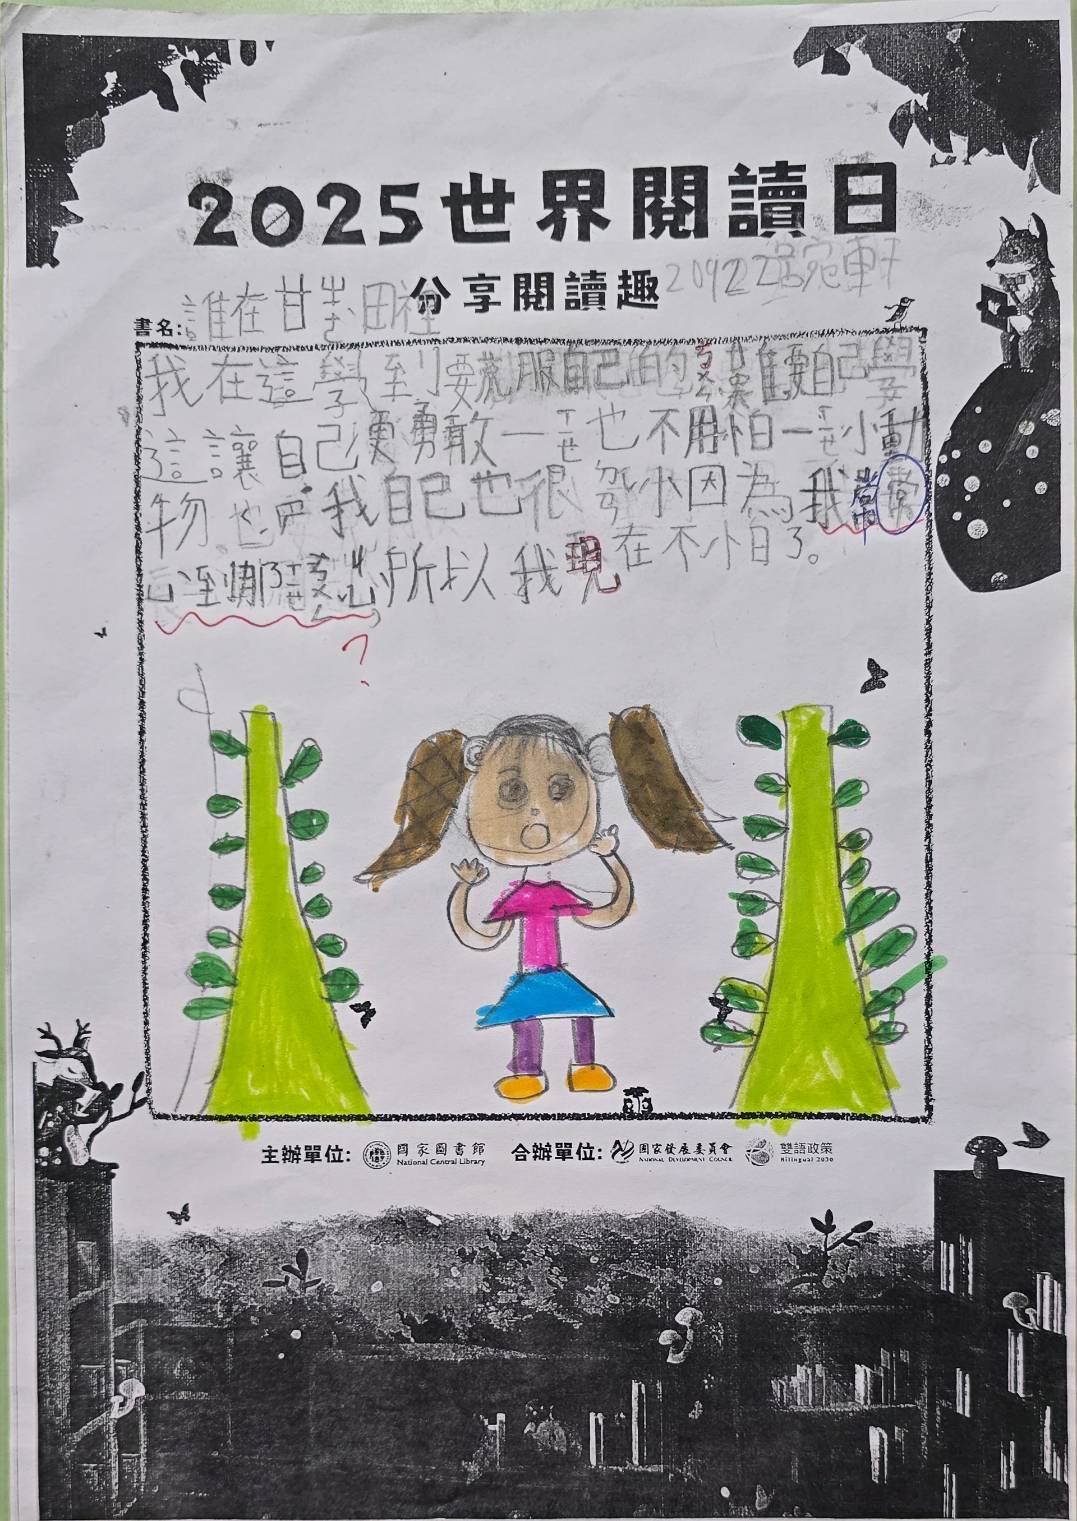 2025世界閱讀日
分享閱讀趣
20922
宛軒
書名:
誰在甘蔗田裡
我在這學到要克服自己的ㄎㄨㄣ難要自己學
這讓自己更勇敢一ㄒㄧㄝ也不用怕一ㄒㄧㄝ小動
物也 我自己也很 小因為我常
到那ㄒㄧㄝ 所以我現在不小日了。
?
主辦單位: 國家圖書館
National Central Library
合辦單位: 國家發展委員會
National Development Council
雙語政策
Bilingual 2030